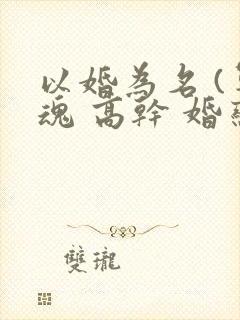 以婚為名 (
魂 高幹 婚
雙瓏